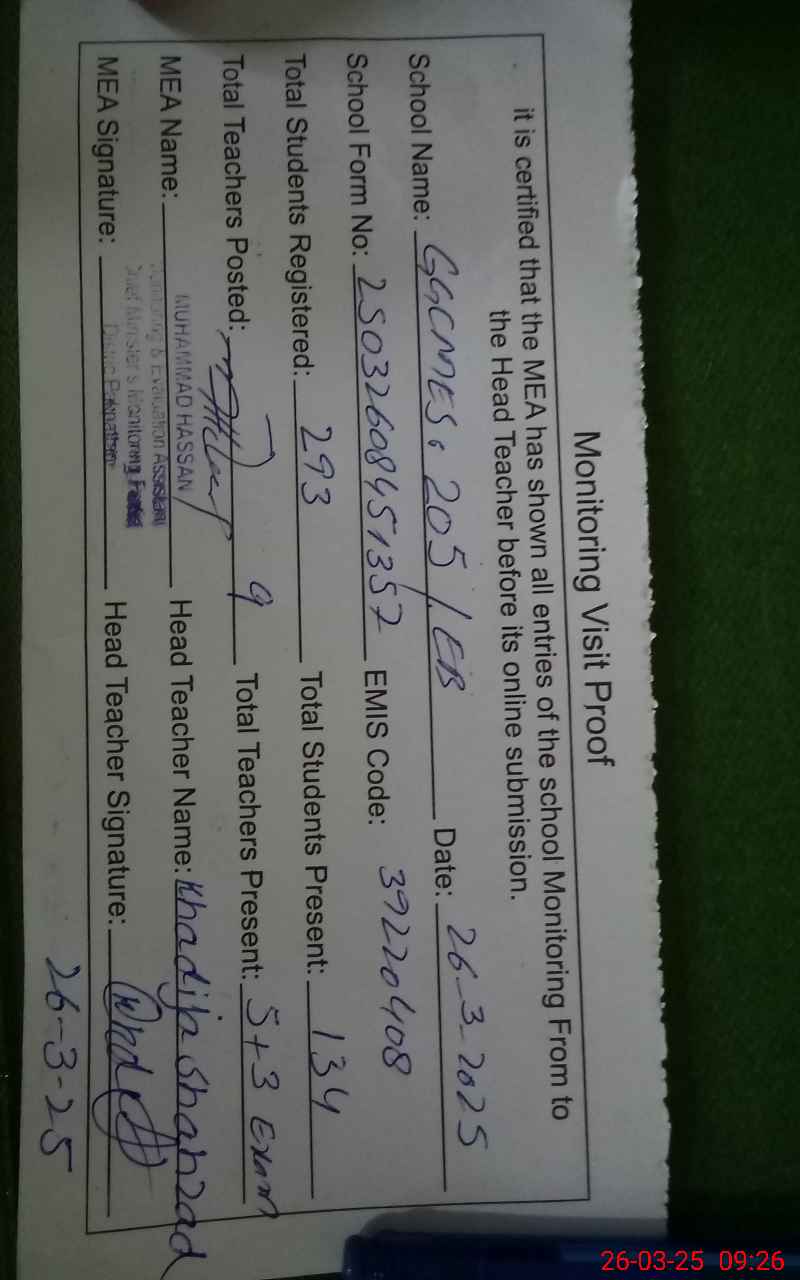 Monitoring Visit Proof
it is certified that the MEA has shown all entries of the school Monitoring From to
the Head Teacher before its online submission.
School Name: GGCMES, 205/EB Date: 26-3-2025
School Form No: 25032608451357 EMIS Code: 39220408
Total Students Registered: 293 Total Students Present: 134
Total Teachers Posted: 9 Total Teachers Present: 5+3 Exam
MEA Name: MUHAMMAD HASSAN Head Teacher Name: Khadija Shahzad
Monitoring & Evaluation Assistant
Chief Minister's Monitoring
District Pakpattan
MEA Signature: Head Teacher Signature:
26-3-25
26-03-25 09:26